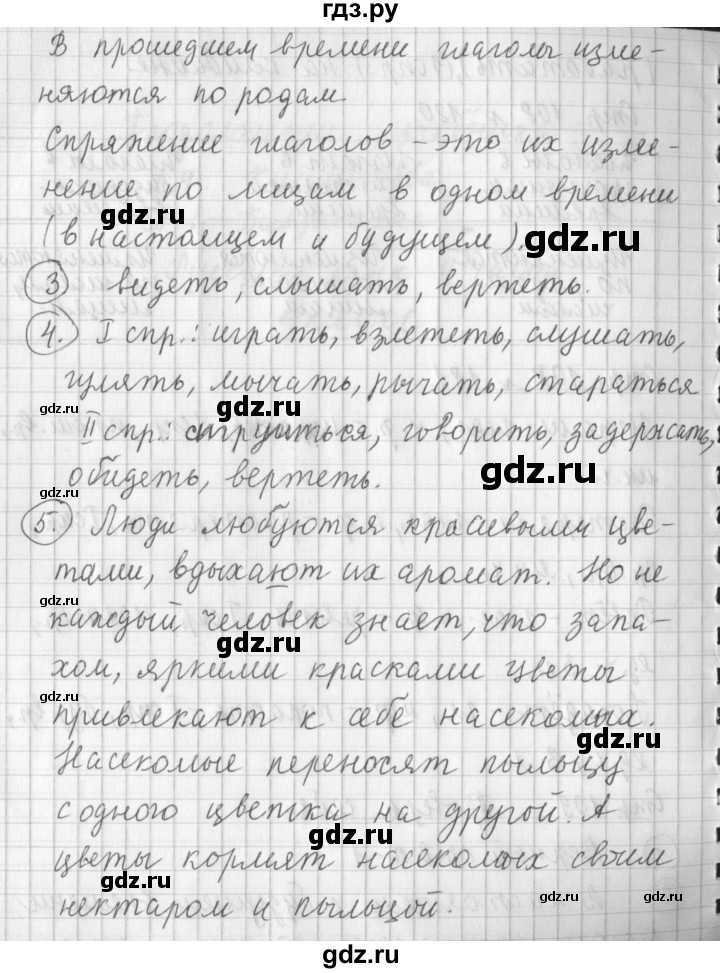 гдз.ру
В прошедшем времени глаголы изме-
няются по родам.
Спряжение глаголов – это их изме-
нение по лицам в одном времени
gdz.ru
(в настоящем и будущем).
gdz.ru
3 видеть, слышать, вертеть.
gdz.ru
4. I спр.: играть, взлететь, слушать,
гулять, мычать, рычать, стараться
gdz.ru gdz.ru
II спр.: струиться, говорить, задержать,
обидеть, вертеть.
gdz.ru
gdz.ru
5. Люди любуются красивыми цве-
тами, вдыхают их аромат. Но не
gdz.ru
каждый человек знает, что запа-
gdz.ru
хом, яркими красками цветы
gdz.ru
привлекают к себе насекомых.
gdz.ru
Насекомые переносят пыльцу
с одного цветка на другой. А
gdz.ru
цветы кормят насекомых своим
gdz.ru
нектаром и пыльцой.
gdz.ru gdz.ru
gdz.ru